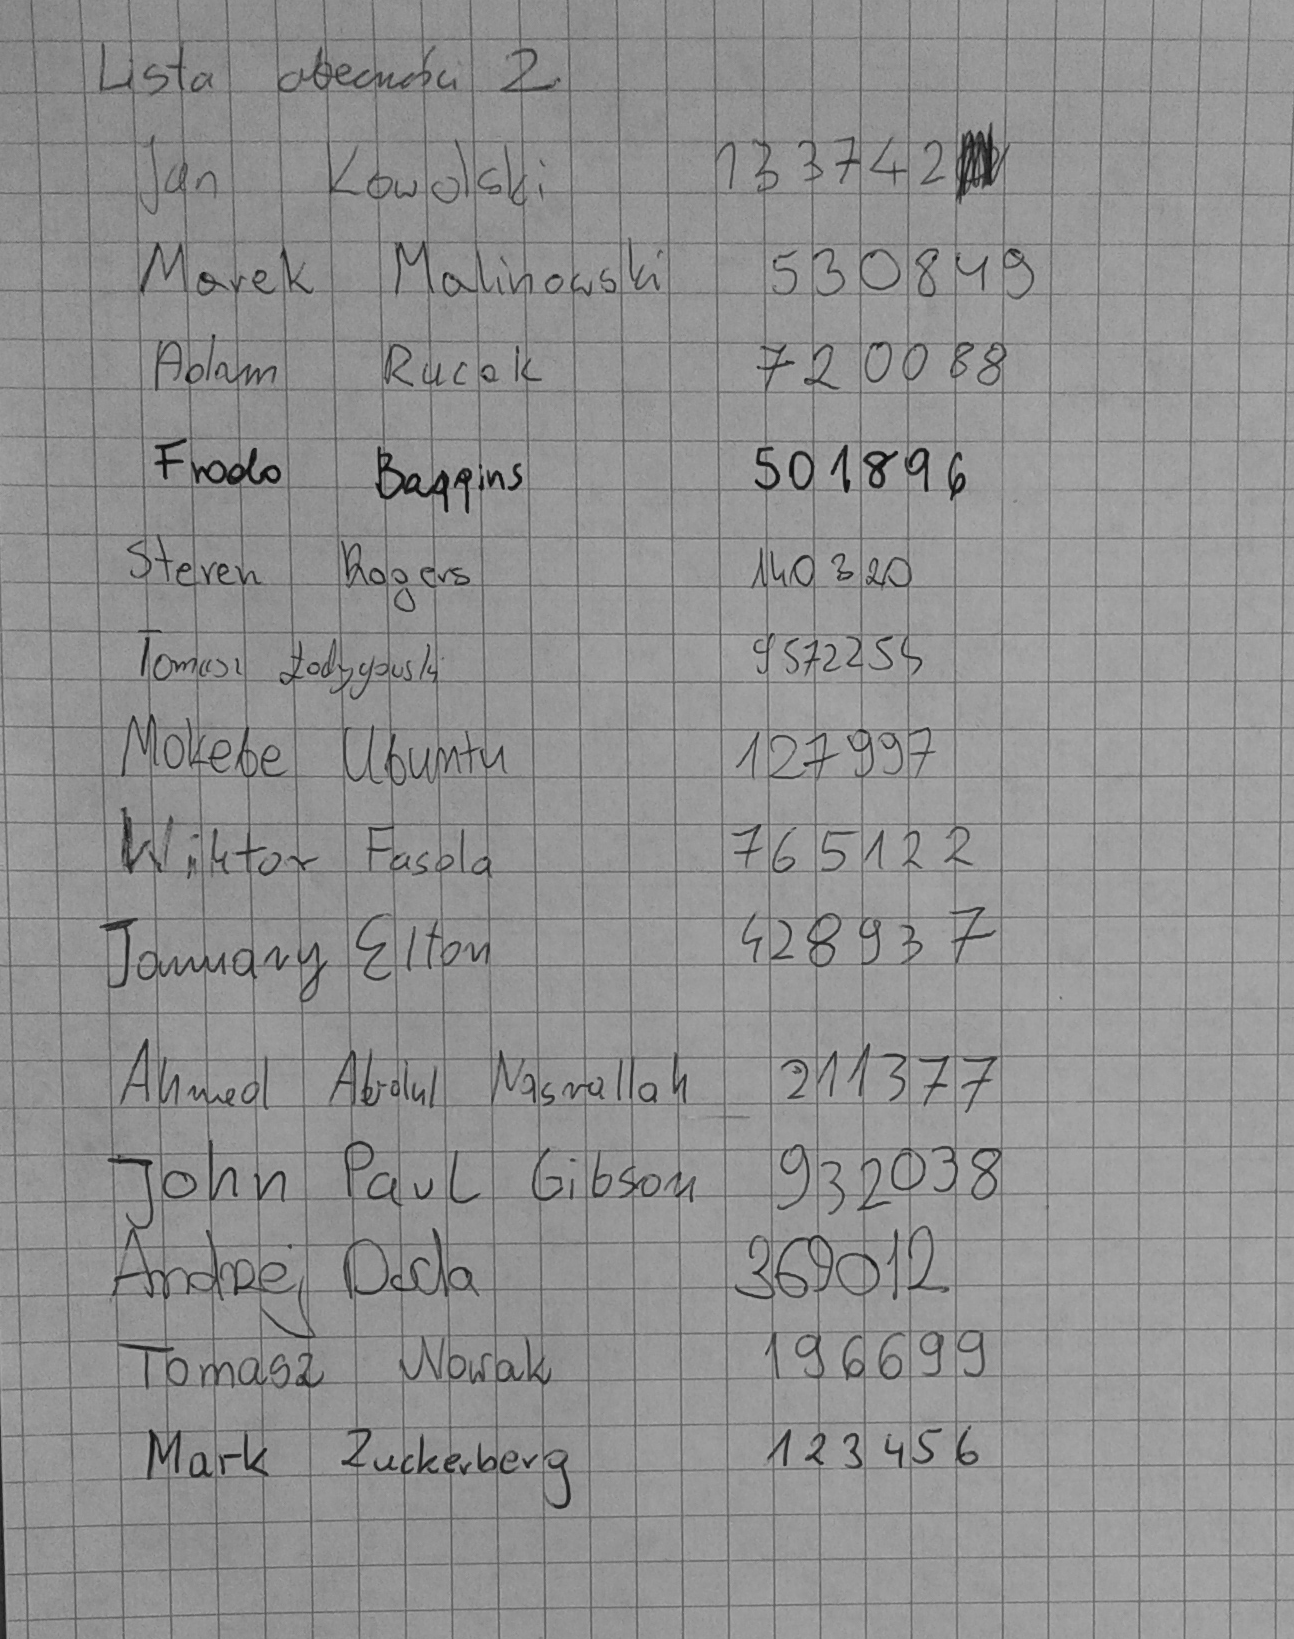 Lista obecności 2
Jan Kowolski 133742
Marek Malinowski 530849
Adam Rucak 720088
Frodo Baggins 501896
Steven Rogers 140320
Tomasz 9572254
Mokebe Ubuntu 127997
Wiktor Fasola 765122
January Elton 428937
Ahmed Abdul Nasrallah 211377
John Paul Gibson 932038
Andrzej Duda 369012
Tomasz Nowak 196699
Mark Zuckerberg 123456